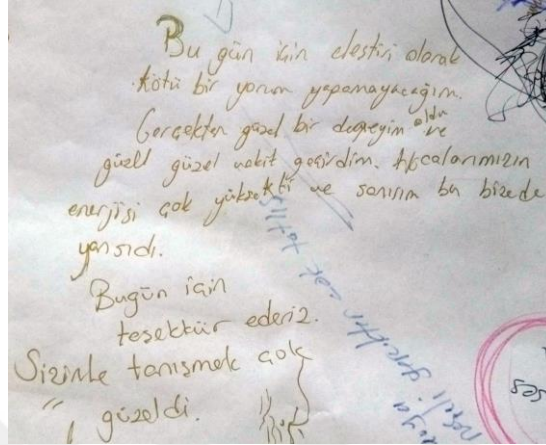 Bu gün için eleştiri olarak
kötü bir yorum yapamayacağım.
Gerçekten güzel bir deneyim oldu ve
güzel güzel vakit geçirdim. Hocalarımızın
enerjisi çok yüksekti ve sanırım bu bizede
yansıdı.
Bugün için
teşekkür ederiz.
Sizinle tanışmak çok
" güzeldi.
neşeli gerçekten çok tatlış
ses